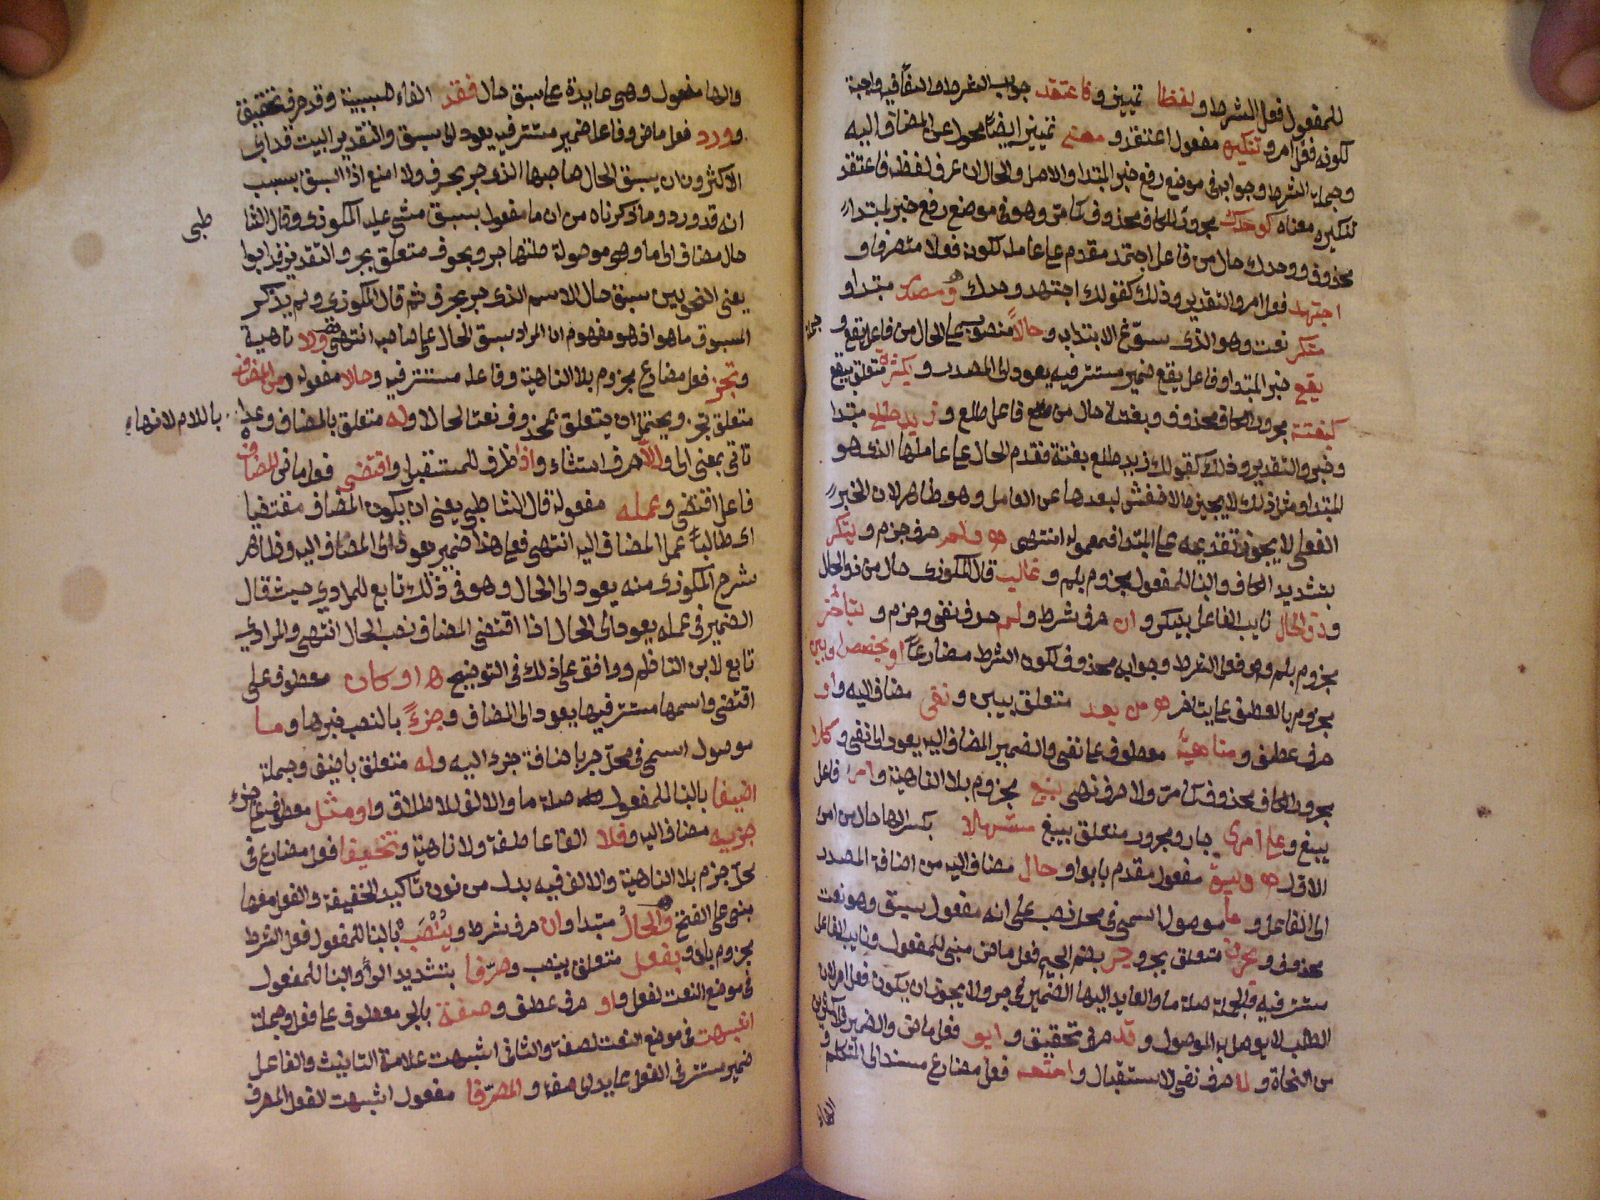 للمفعول فعل الشرط ولفظا تمييز وفاعتقد جواب الشرط والفا فيه واجبة
لكونه فعل امر وتنكيره مفعول اعتقد ومعنى تمييز ايضا محول عن المضاف اليه
وجملة الشرط وجوابه في موضع رفع خبر المبتدا والاصل والحال ان عرف لفظه فاعتقد
تنكيره معناه كوحدك مجرور الكاف محذوف كما مر وهو في موضع رفع خبر لمبتدا
محذوف ووحدك حال من فاعل اجتهد مقدم على عامله لكونه فعلا متصرفا و
اجتهد فعل امر والتقدير وذلك كقولك اجتهد وحدك ه ومصدر مبتدا و
منكر نعت وهو الذي سوغ الابتدا به وحالا منصوب على الحال من فاعل يقع و
يقع خبر المبتدا وفاعل يقع ضمير مستتر فيه يعود الى المصدر وبكثرة متعلق بيقع
كبغتة مجرور الكاف محذوف وبغتة حال من فاعل طلع وزيد طلع مبتدا
وخبر والتقدير وذلك كقولك زيد طلع بغتة فقدم الحال على عاملها الذي هو
المبتدا ومثل ذلك لا يجيزه الاخفش لبعدها عن العامل وهو ظاهر لان الخبر
الفعلي لا يجوز تقديمه على المبتدا فمعموله انتهى ه ولم حرف جزم وينكر
بتشديد الكاف والبنا للمفعول مجزوم بلم وغالبا قال المكودي حال من ذو الحال
وذو الحال نايب الفاعل بينكر وان حرف شرط ولم حرف نفي وجزم ويتاخر
مجزوم بلم وهو فعل الشرط وجوابه محذوف لكون الشرط مضارعا او يخصص او يبن
مجزوم بالعطف على يتاخر ه ومن بعد متعلق بيبن ونفي مضاف اليه واو
حرف عطف ومضاهيه معطوف على نفي والضمير المضاف اليه يعود الى نفي وكلا
مجرور الكاف محذوف كما مر ولا حرف نهي يبغ مجزوم بلا الناهية وامرؤ فاعل
يبغ وعلى امرئ جار ومجرور متعلق بيبغ مستسهلا بكسر الها حال من امرؤ
الاول ه وسبق مفعول مقدم بابوا وحال مضاف اليه من اضافة المصدر
الى الفاعل وما موصول اسمي في محل نصب على انه مفعول بسبق وهو نعت
محذوف وبحرف متعلق بجر وجر بضم الجيم فعل ماض مبني للمفعول ونايب الفاعل
مستتر فيه والجملة صلة ما والعايد اليها الضمير في جر ولا يجوز ان يكون فعل امر لان
الطلب لا يوصل به الموصول وقد حرف تحقيق وابوا فعل ماض والضمير
من النحاة ولا حرف نفي لاستقبال وامنعه فعل مضارع مسند الى المتكلم و
والها مفعول وهي عايدة على سبق حال فقد الفاء سببية وقد حرف تحقيق
وورد فعل ماض وفاعله ضمير مستتر فيه يعود الى سبق والتقدير البيت قد ابى
الاكثرون ان يسبق الحال صاحبها الذي جر بحرف ولا امنع اذا السبق بسبب
انه قد ورد وما ذكرناه من ان ما مفعول بسبق مشى عليه المكودي وقال الشا
طبي
حال مضاف الى ما وهي موصولة صلتها جر وبحرف متعلق بجر والتقدير قد ابوا
يعني النحويين سبق حال للاسم الذي جر بحرف ثم قال المكودي ولم يذكر
المسبوق ما هو اذ هو مفهوم ان المراد سبق الحال على صاحبه انتهى ولا ناهية
وتجز فعل مضارع مجزوم بلا الناهية وفاعله مستتر فيه وحالا مفعوله ومن المضاف
متعلق بتجز ويحتمل ان يتعلق بمحذوف نعت لحالا وله متعلق بالمضاف وعداه باللام لانها
تاتي بمعنى الى والا حرف استثناء واذا ظرف للمستقبل واقتضى فعل ماض المضاف
فاعل اقتضى وعمله مفعوله قال الشاطبي يعني ان يكون المضاف مقتضيا
اي طالبا عمل المضاف اليه انتهى فعلى هذا ضمير يعود الى المضاف اليه وظاهر
شرح المكودي منه يعود الى الحال وهو في ذلك تابع للمرادي حيث قال
الضمير في عمله يعود الى الحال اذا اقتضى المضاف نصب الحال انتهى والمرادي
تابع لابن الناظم ووافق على ذلك في التوضيح ه او كان معطوف على
اقتضى واسمها مستتر فيها يعود الى المضاف وجزء بالنصب خبرها وما
موصول اسمي في محل جر باضافة جزء اليه وله متعلق باضيف وجملة
اضيفا بالبنا للمفعول صلة ما والالف للاطلاق واو مثل معطوف على جزء
جزيه مضاف اليه وفلا الفا عاطفة ولا ناهية وتحيفا فعل مضارع في
محل جزم بلا الناهية والالف فيه بدل من نون تاكيد الخفيفة والفعل معها
مبني على الفتح والحال مبتدا وان حرف شرط وينصب بالبنا للمفعول فعل الشرط
مجزوم بان وبفعل متعلق بينصب وصرفا بتشديد الرا والبنا للمفعول
في موضع النعت لفعل واو حرف عطف وصفة بالجر معطوف على فعل وجملة
اشبهت في موضع النعت لصفة والثا في اشبهت علامة التانيث والفاعل
ضمير مستتر في الفعل عايد الى صفة والمصرفا مفعول اشبهت لفعل المصرف